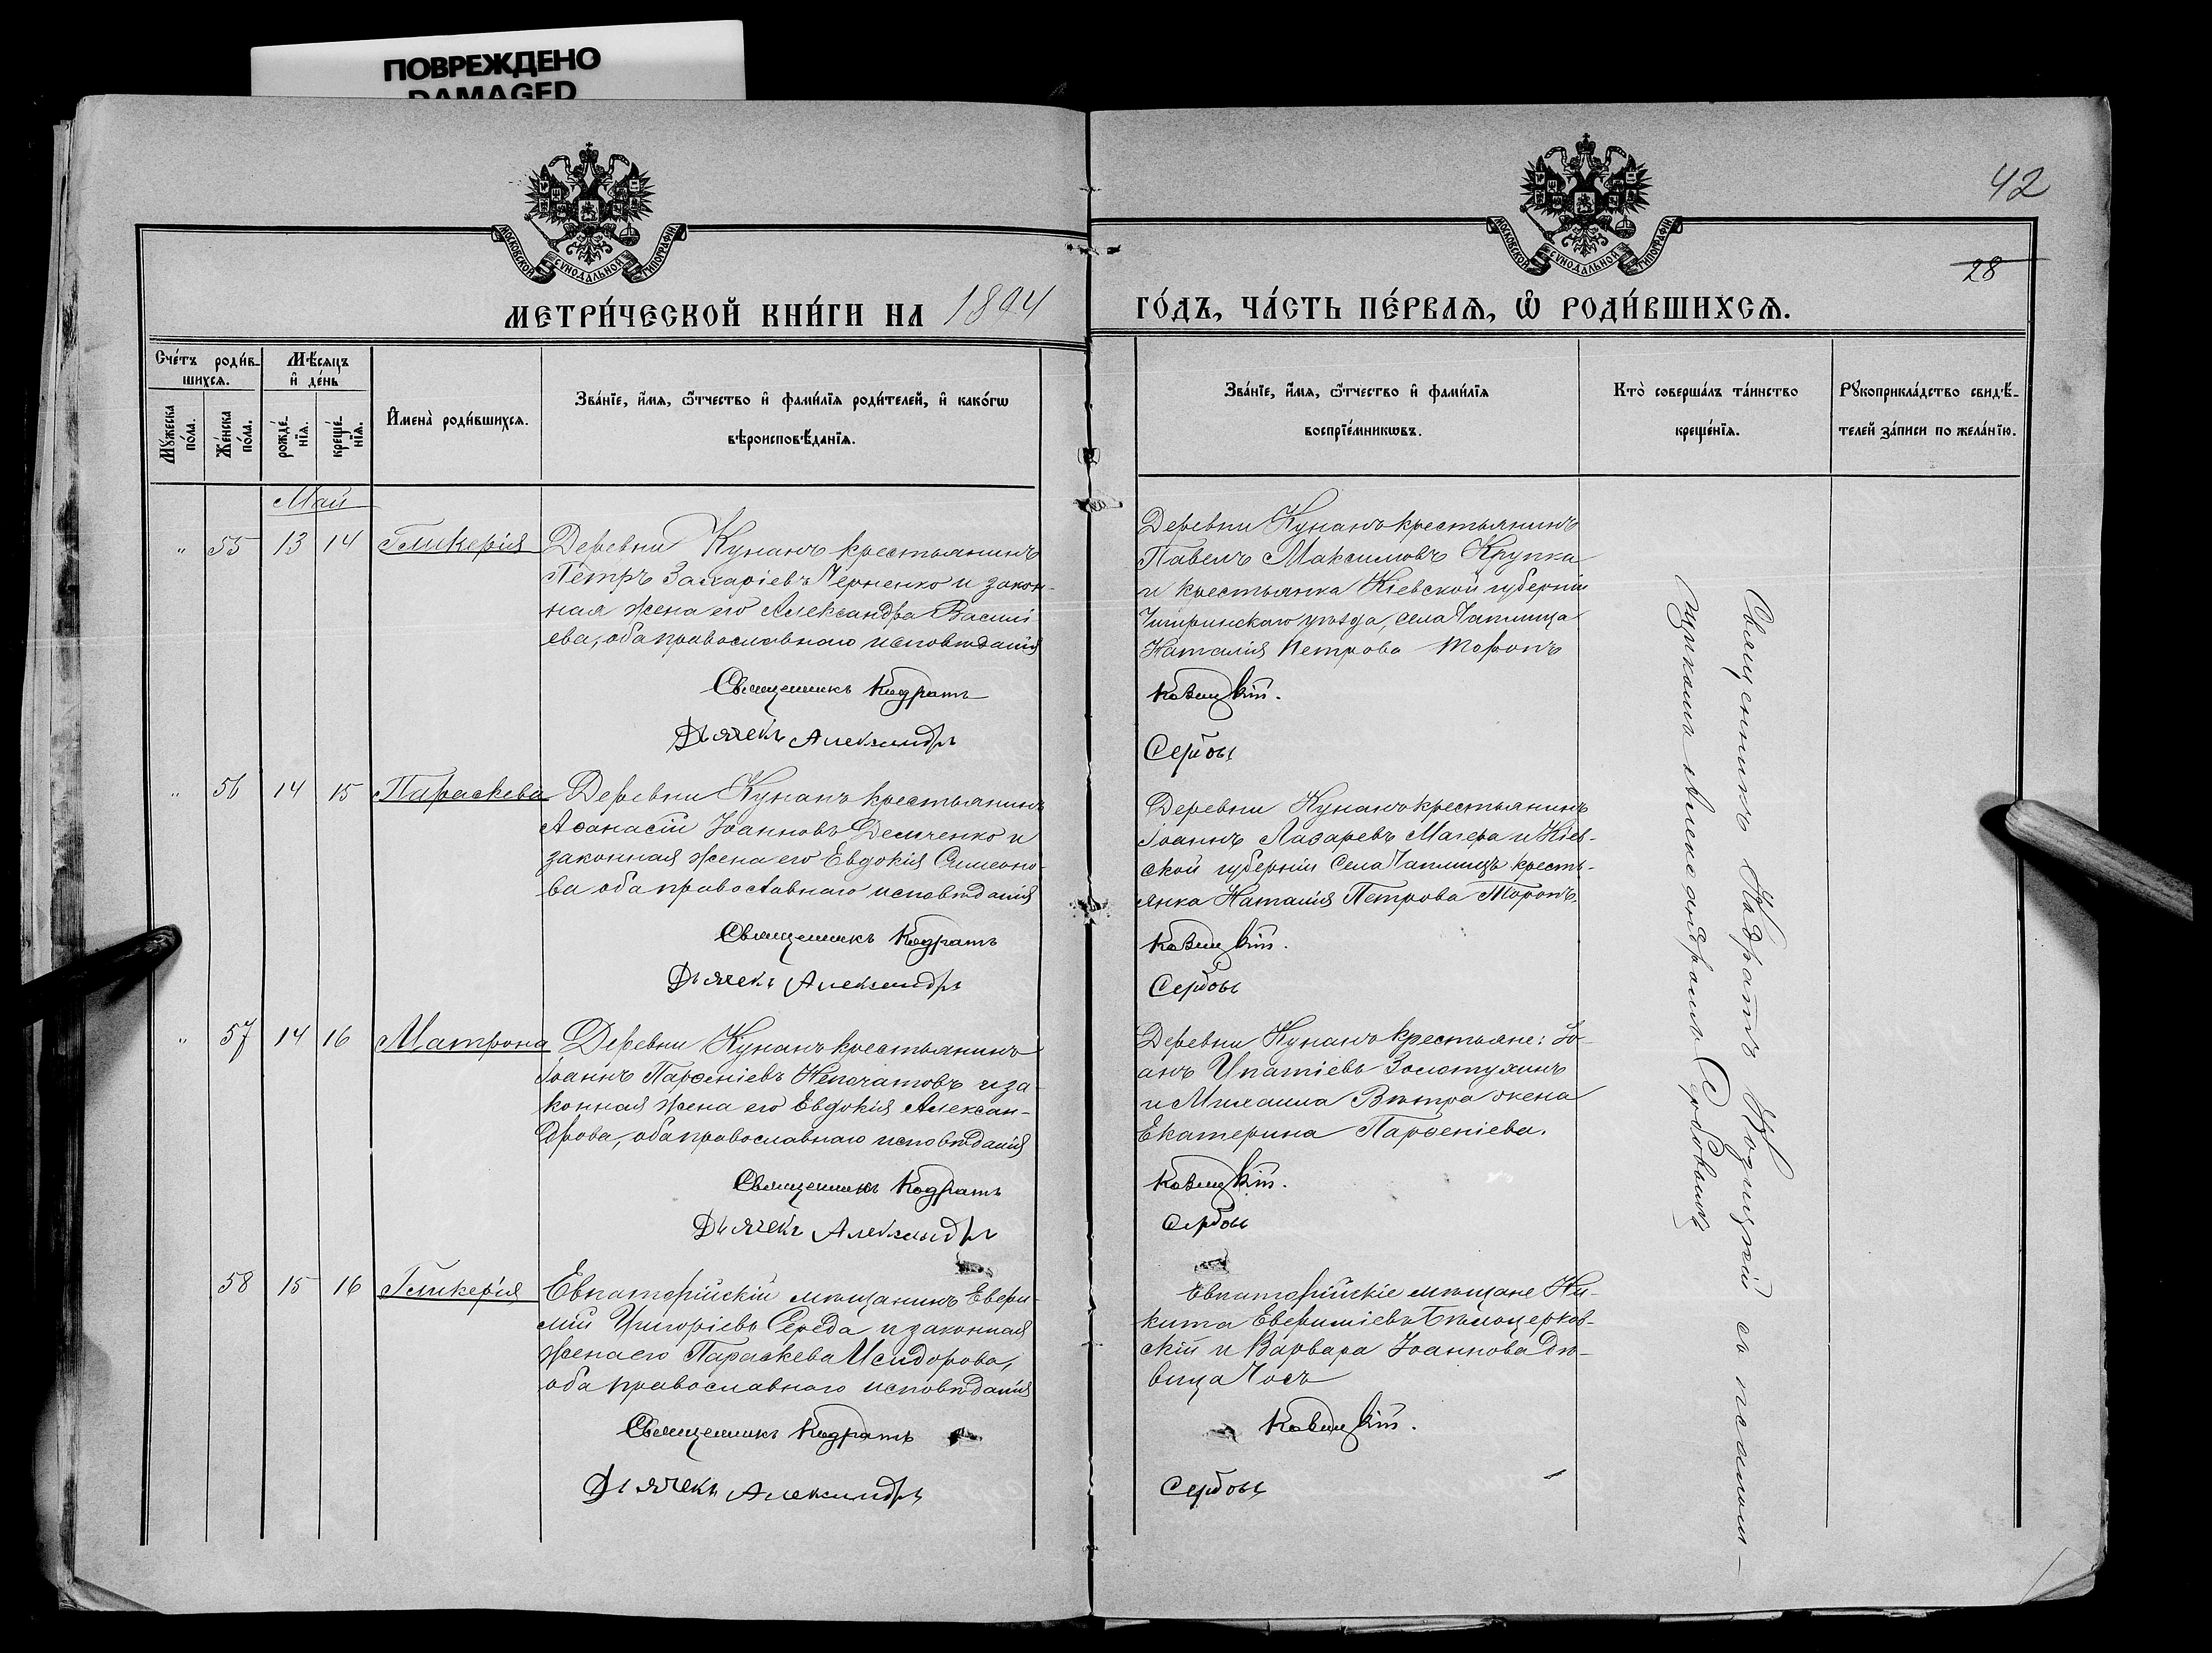 ПОВРЕЖДЕНО
DAMAGED
42
28
МОСКОВСКОЙ СУНОДАЛЬНОЙ ТИПОГРАФІИ
МОСКОВСКОЙ СУНОДАЛЬНОЙ ТИПОГРАФІИ
МЕТРИ́ЧЕСКОЙ КНИ́ГИ НА 1894
ГО́ДЪ, ЧА́СТЬ ПЕ́РВАѦ, Ѡ҆ РОДИ́ВШИХСѦ.
Сче́тъ роди́в-
шихсѧ.
Мѣ́сѧцъ
и҆ де́нь
Мꙋ́жеска
по́ла.
Же́нска
по́ла.
рожде́-
нїѧ.
креще́-
нїѧ.
И҆мена̀ роди́вшихсѧ.
Зва́нїе, и҆́мѧ, ѻ҆́тчество и҆ фами́лїѧ роди́телей, и҆ како́гѡ
вѣроисповѣ́данїѧ.
Зва́нїе, и҆́мѧ, ѻ҆́тчество и҆ фами́лїѧ
воспрїе́мникѡвъ.
Кто̀ соверша́лъ та́инство
креще́нїѧ.
Рꙋкоприкла́дство свидѣ́-
телей за́писи по жела́нїю.
Май
" 55 13 14 Гликерія
Деревни Кунанъ крестьянинъ
Петръ Захаріевъ Черненко и закон-
ная жена его Александра Васили-
ева, оба православнаго исповѣданія
Священникъ Кодратъ
Дьячекъ Александръ
Деревни Кунанъ крестьянинъ
Павелъ Максимовъ Крупка
и крестьянка Кіевской губерніи
Чигиринскаго уѣзда, села
Наталія Петрова
Козицкій.
Сербовъ
" 56 14 15 Параскева
Деревни Кунанъ крестьянинъ
Аѳанасій Іоанновъ Демченко и
законная жена его Евдокія Симеоно-
ва оба православнаго исповѣданія
Священникъ Кодратъ
Дьячекъ Александръ
Деревни Кунанъ крестьянинъ
Іоаннъ Лазаревъ Магера и Кіев-
ской губерніи села крестъ-
янка Наталія Петрова
Козицкій.
Сербовъ
" 57 14 16 Матрона
Деревни Кунанъ крестьянинъ
Іоаннъ Парѳеніевъ Непочатовъ и за-
конная жена его Евдокія Алексан-
дрова, оба православнаго исповѣданія
Священникъ Кодратъ
Дьячекъ Александръ
Деревни Кунанъ крестьяне: Іо-
анъ Ипатіевъ Золотухинъ
и Михаила Вѣтра жена
Екатерина Парѳеніева.
Козицкій.
Сербовъ
58 15 16 Гликерія
Евпаторійскій мѣщанинъ Евѳи-
мій Григоріевъ Середа и законная
жена его Параскева Исидорова,
оба православнаго исповѣданія
Священникъ Кодратъ
Дьячекъ Александръ
Евпаторійскіе мѣщане Ни-
кита Евѳиміевъ Бѣлоцерков-
скій и Варвара Іоаннова дѣ-
вица
Козицкій.
Сербовъ
Священникъ Кодратъ Козицкій съ псалом-
щикомъ Александромъ Сербовымъ